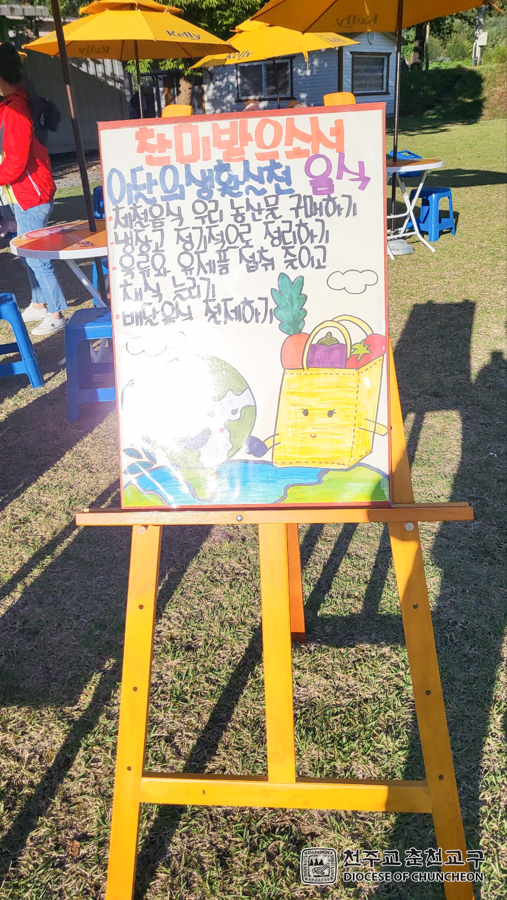 Kelly
Kelly
찬미받으소서
이달의 생활실천 음식
제철음식 우리 농산물 구매하기
냉장고 정기적으로 정리하기
육류와 유제품 섭취 줄이고
채식 늘리기
배달음식 절제하기
천주교 춘천교구
DIOCESE OF CHUNCHEON